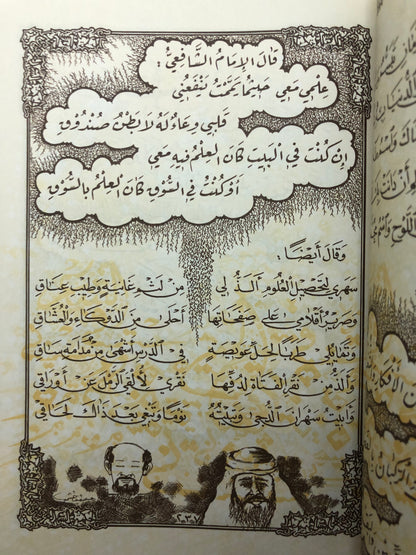 قَالَ الإِمَامُ الشَّافِعِيُّ :
عِلْمِي مَعِي حَيْثُمَا يَمَّمْتُ يَنْفَعُنِي
قَلْبِي وِعَاءٌ لَهُ لَا بَطْنُ صُنْدُوقِ
إِنْ كُنْتُ فِي الْبَيْتِ كَانَ الْعِلْمُ فِيهِ مَعِي
أَوْ كُنْتُ فِي السُّوقِ كَانَ الْعِلْمُ بِالسُّوقِ
وَقَالَ أَيْضًا :
سَهَرِي لِتَحْصِيلِ الْعُلُومِ أَلَذُّ لِي مِنْ لَثْمِ غَانِيَةٍ وَطِيبِ عِنَاقِ
وَصَرِيرُ أَقْلَامِي عَلَى صَفَحَاتِهَا أَحْلَى مِنَ الدَّوْكَاءِ وَالْعُشَّاقِ
وَتَمَايُلِي طَرَبًا لِحَلِّ عَوِيصَةٍ فِي الدَّرْسِ أَشْهَى مِنْ مُدَامَةِ سَاقِ
وَأَلَذُّ مِنْ نَقْرِ الْفَتَاةِ لِدُفِّهَا نَقْرِي لِأُلْقِي الرَّمْلَ عَنْ أَوْرَاقِي
وَأَبِيتُ سَهْرَانَ الدُّجَى وَتَبِيتُهُ نَوْمًا وَتَبْغِي بَعْدَ ذَاكَ لَحَاقِي